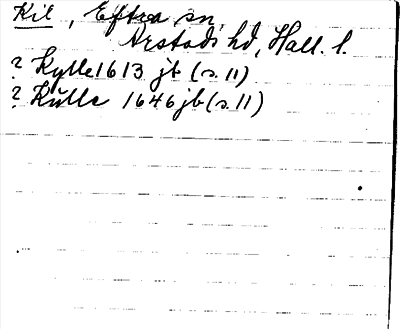 Kil, Eftra sn,
Årstads hd, Hall. l.
? Kylle 1613 jb (s. 11)
? Kulle 1646 jb (s. 11)